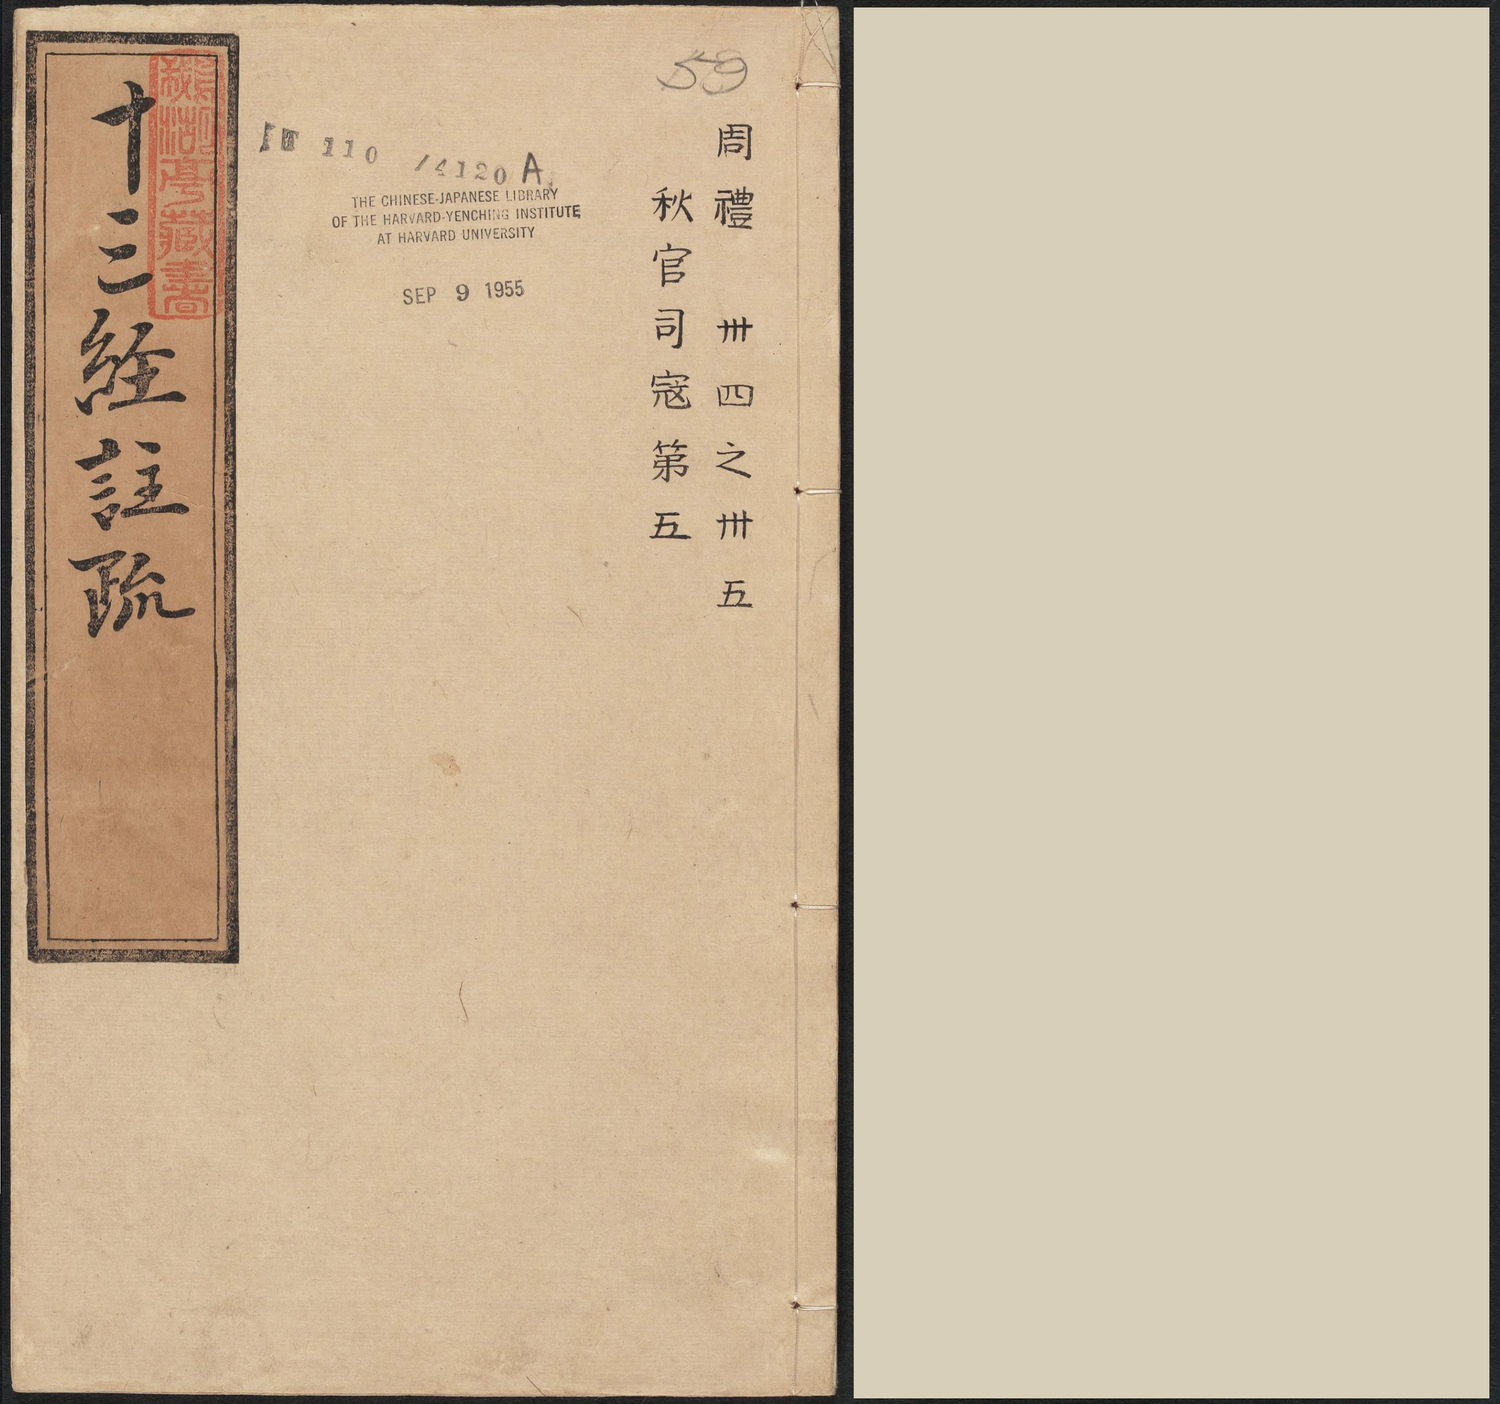 59
周禮 卅四之卅五
秋官司寇第五
110 /4120 A
THE CHINESE-JAPANESE LIBRARY
OF THE HARVARD-YENCHING INSTITUTE
AT HARVARD UNIVERSITY
SEP 9 1955
十三経註疏
亭藏書